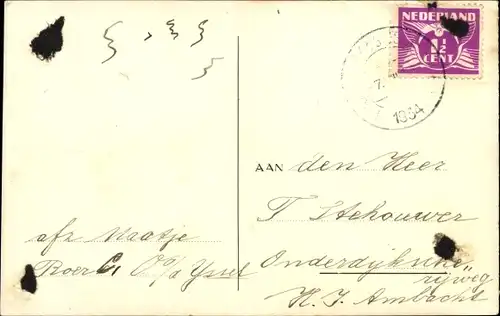 NEDERLAND
1½
CENT
1934
AAN den Heer
T Stehouwer
Onderdijksche
rijweg
H. I. Ambacht
afz Maatje
Boer C, O/a Yssel